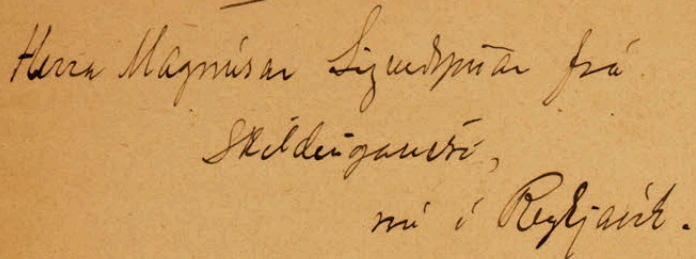 Herra Magnúsar Sigurðssonar frá
Skildinganesi,
nú í Reykjavík.